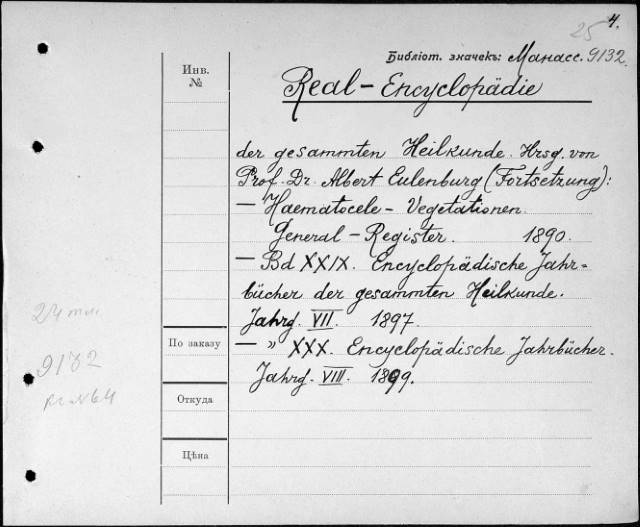 25 4.
Библіот. значекъ: Манасс. 9132.
Инв.
№
Real - Encyclopädie
der gesammten Heilkunde. Hrsg. von
Prof. Dr. Albert Eulenburg (Fortsetzung):
— Haematocele - Vegetationen.
General - Register. 1890.
— Bd XXIX. Encyclopädische Jahr-
bücher der gesammten Heilkunde.
Jahrg. VII. 1897.
— „ XXX. Encyclopädische Jahrbücher.
Jahrg. VIII. 1899.
По заказу
Откуда
Цѣна
9132